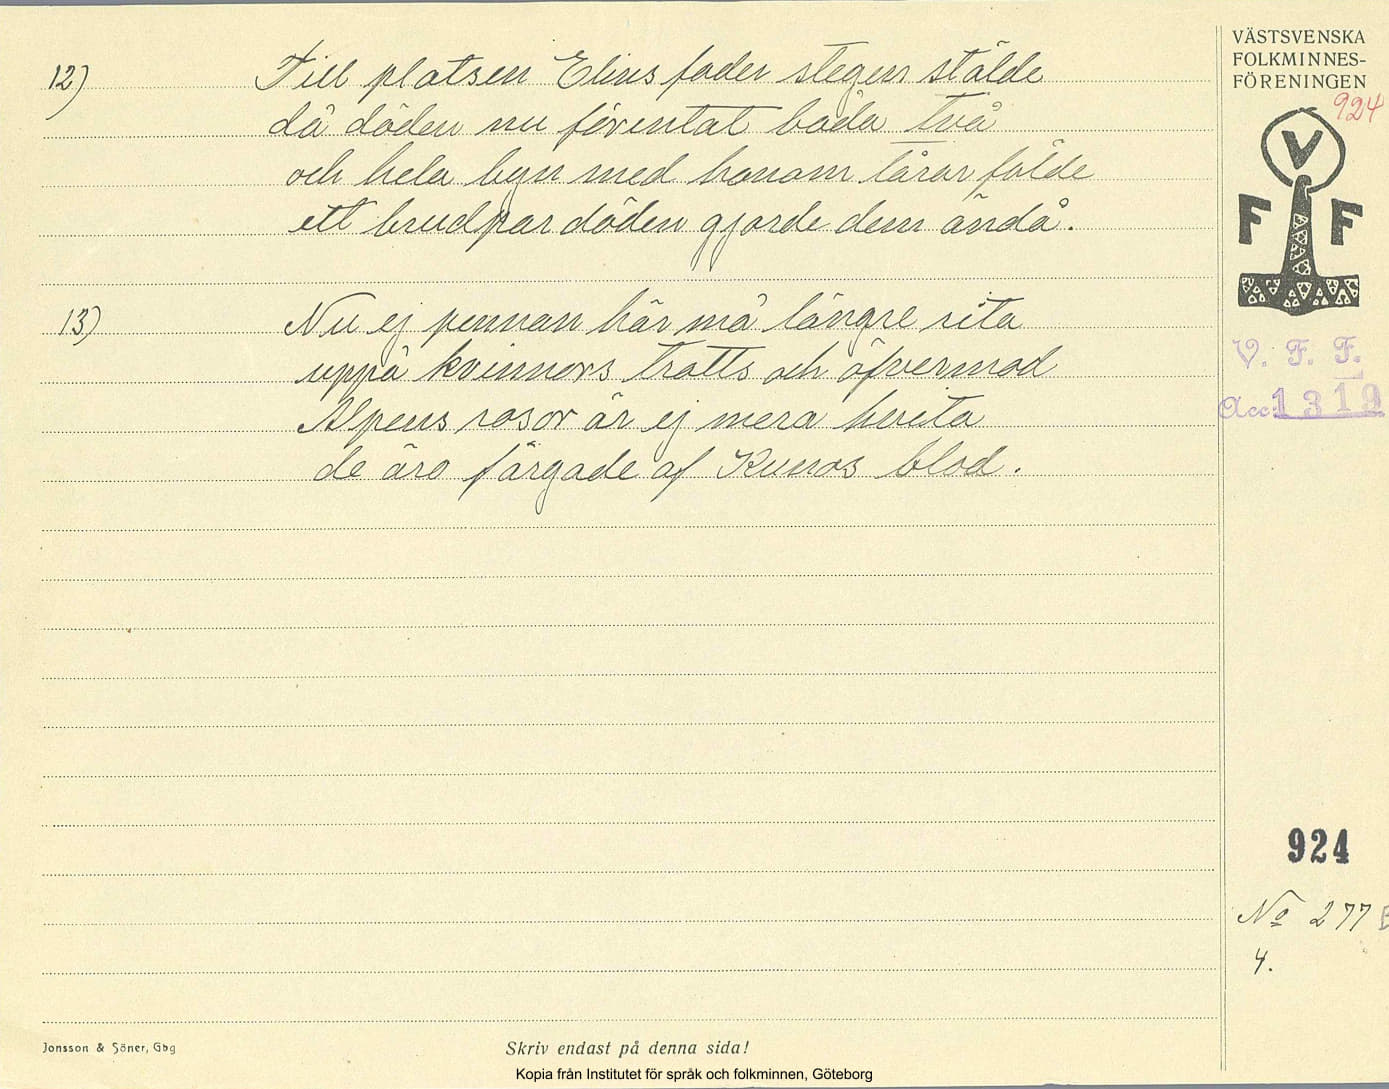 12) Till platsen Elins fader stegen stälde
då döden nu förentat båda två
och hela byn med honom tårar fälde
ett brudpar döden gjorde dem ändå.
13) Nu ej pennan här må längre rita
uppå kvinnors trotts och öfvermod
Alpens rosor är ej mera hvita
de äro färgade af Kunos blod.
VÄSTSVENSKA
FOLKMINNES-
FÖRENINGEN
924
V
F F
V. F. F.
Acc: 1319
924
No 277
4.
Jonsson & Söner, Gbg
Skriv endast på denna sida!
Kopia från Institutet för språk och folkminnen, Göteborg